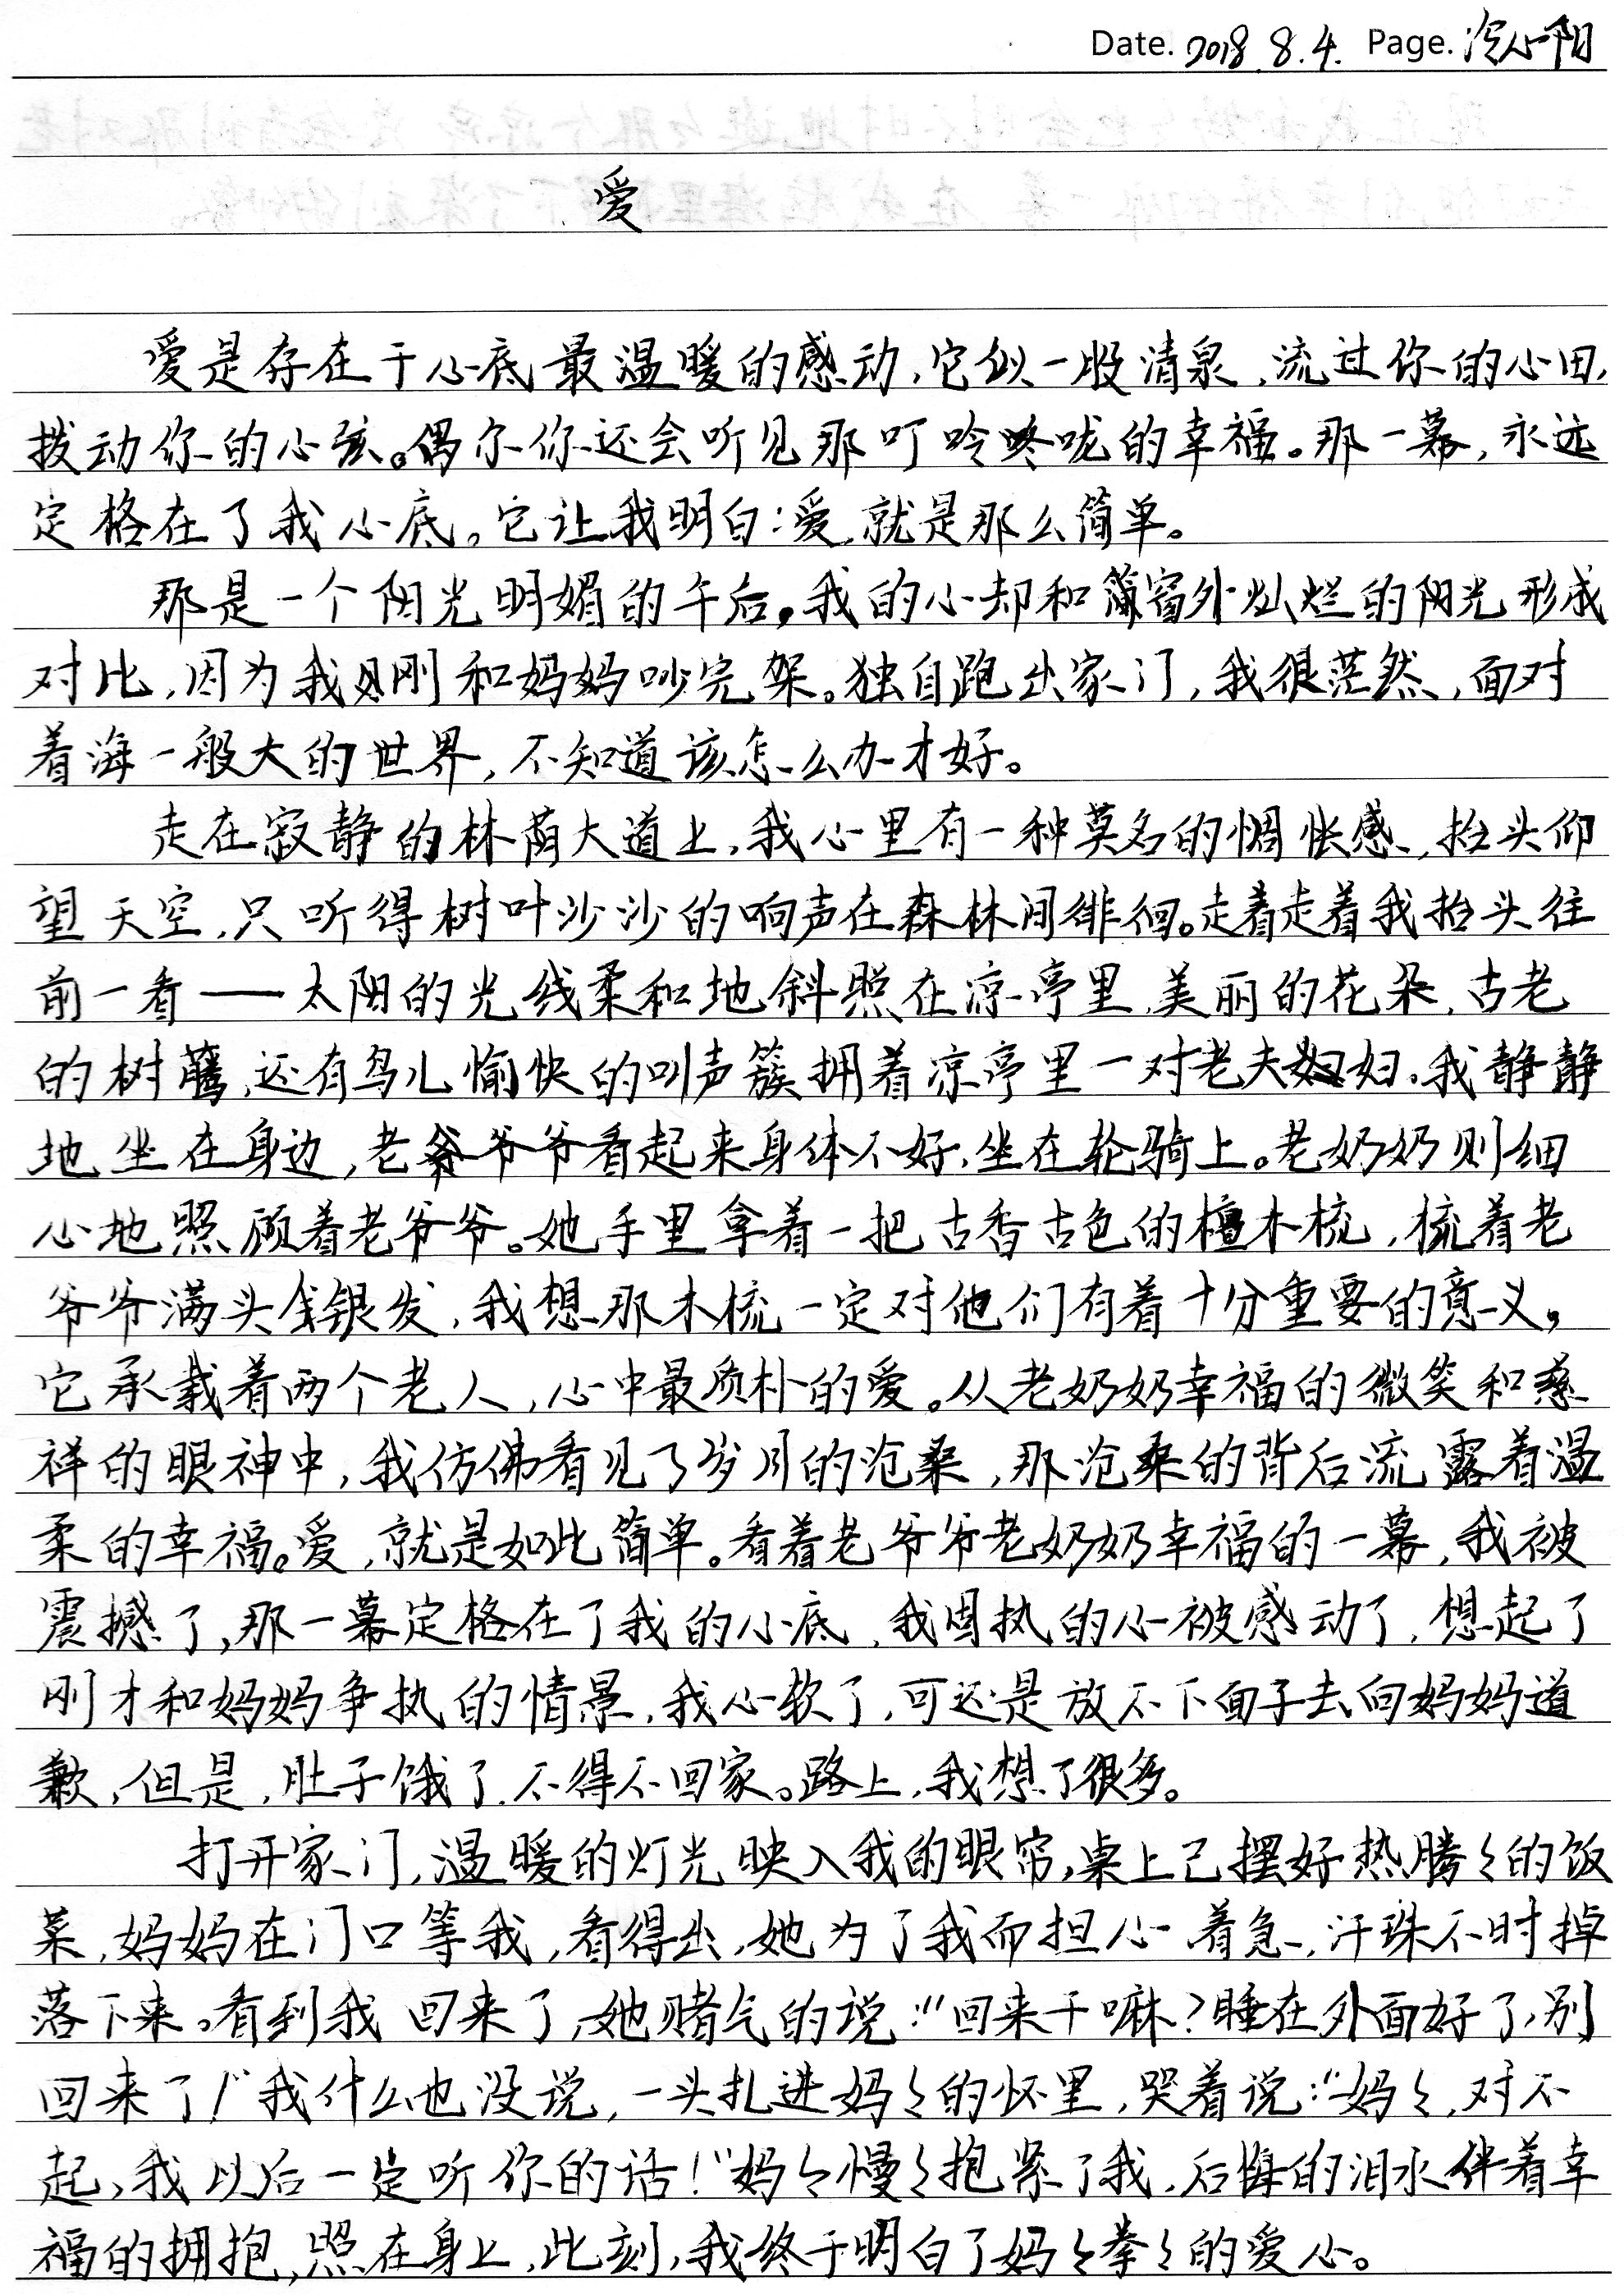 Date. 2018.8.4. Page. 冷心阳
爱
爱是存在于心底最温暖的感动,它似一股清泉,流过你的心田,
拨动你的心弦。偶尔你还会听见那叮呤咚咙的幸福。那一幕,永远
定格在了我心底。它让我明白:爱,就是那么简单。
那是一个阳光明媚的午后,我的心却和窗外灿烂的阳光形成
对比,因为我刚和妈妈吵完架。独自跑出家门,我很茫然,面对
着海一般大的世界,不知道该怎么办才好。
走在寂静的林荫大道上,我心里有一种莫名的惆怅感,抬头仰
望天空,只听得树叶沙沙的响声在森林间徘徊。走着走着我抬头往
前一看——太阳的光线柔和地斜照在凉亭里,美丽的花朵,古老
的树藤,还有鸟儿愉快的叫声簇拥着凉亭里一对老夫妇。我静静
地坐在身边,老爷爷看起来身体不好,坐在轮骑上。老奶奶则细
心地照顾着老爷爷。她手里拿着一把古香古色的檀木梳,梳着老
爷爷满头银发,我想那木梳一定对他们有着十分重要的意义,
它承载着两个老人,心中最质朴的爱。从老奶奶幸福的微笑和慈
祥的眼神中,我仿佛看见了岁月的沧桑,那沧桑的背后流露着温
柔的幸福。爱,就是如此简单。看着老爷爷老奶奶幸福的一幕,我被
震撼了,那一幕定格在了我的心底,我固执的心被感动了,想起了
刚才和妈妈争执的情景,我心软了,可还是放不下面子去向妈妈道
歉,但是,肚子饿了,不得不回家。路上,我想了很多。
打开家门,温暖的灯光映入我的眼帘,桌上已摆好热腾〻的饭
菜,妈妈在门口等我,看得出,她为了我而担心着急,汗珠不时掉
落下来。看到我回来了,她赌气的说:“回来干嘛?睡在外面好了,别
回来了!”我什么也没说,一头扎进妈〻的怀里,哭着说:“妈〻,对不
起,我以后一定听你的话!”妈〻慢〻抱紧了我,后悔的泪水伴着幸
福的拥抱,照在身上,此刻,我终于明白了妈〻拳〻的爱心。